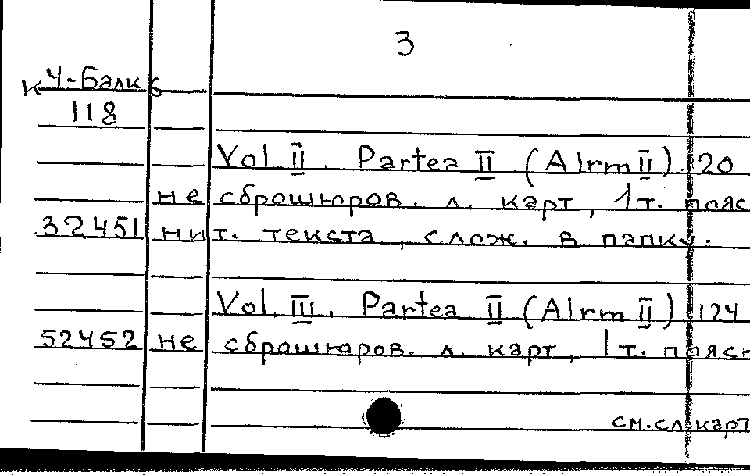 3
К Ч-Балк 6
118
Vol II. Partea II (Alrm II). 120
не сброшюров. л. карт, 1 т. пояс
32451 нит. текста, слож. в папку.
Vol. III. Partea II (Alrm II) 124
52452 не сброшюров. л. карт, 1 т. поясн
см. сл. карт